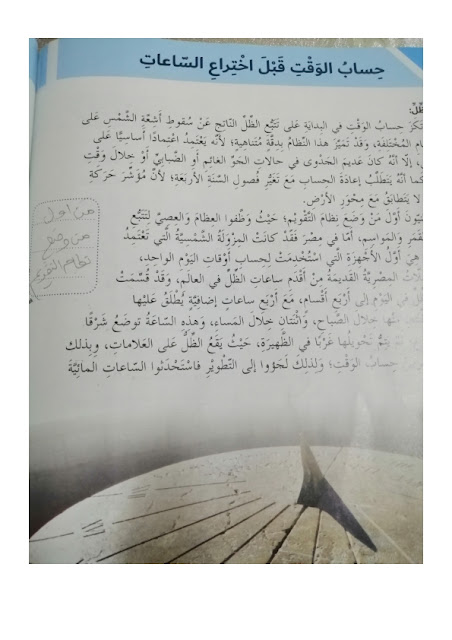 حِسابُ الوَقْتِ قَبْلَ اخْتِراعِ السّاعاتِ
حِسابُ الوَقْتِ في البِدايَةِ عَلى تَتَبُّعِ الظِّلِّ النّاتِجِ عَنْ سُقوطِ أَشِعَّةِ الشَّمْسِ عَلى
المُخْتَلِفَةِ، وَقَدْ تَمَيَّزَ هذا النِّظامُ بِدِقَّةٍ مُتَناهِيَةٍ؛ لِأَنَّهُ يَعْتَمِدُ اعْتِمادًا أَساسِيًّا عَلى
، إِلّا أَنَّهُ كانَ عَديمَ الجَدْوى في حالاتِ الجَوِّ الغائِمِ أَوِ الضَّبابِيِّ أَوْ خِلالَ وَقْتِ
كَما أَنَّهُ يَتَطَلَّبُ إِعادَةَ الحِسابِ مَعَ تَغَيُّرِ فُصولِ السَّنَةِ الأَرْبَعَةِ؛ لِأَنَّ مُؤَشِّرَ حَرَكَةِ
لا يَتَطابَقُ مَعَ مِحْوَرِ الأَرْضِ.
أَوَّلَ مَنْ وَضَعَ نِظامَ التَّقْويمِ؛ حَيْثُ وَظَّفوا العِظامَ وَالعِصِيَّ لِتَتَبُّعِ
القَمَرِ وَالمَواسِمِ، أَمّا في مِصْرَ فَقَدْ كانَتْ المِزْوَلَةُ الشَّمْسِيَّةُ الَّتي تَعْتَمِدُ
هِيَ أَوَّلَ الأَجْهِزَةِ الَّتي اسْتُخْدِمَتْ لِحِسابِ أَوْقاتِ اليَوْمِ الواحِدِ،
المِصْرِيَّةُ القَديمَةُ مِنْ أَقْدَمِ ساعاتِ الظِّلِّ في العالَمِ، وَقَدْ قُسِّمَتْ
في اليَوْمِ إِلى أَرْبَعِ أَقْسامٍ، مَعَ أَرْبَعِ ساعاتٍ إِضافِيَّةٍ يُطْلَقُ عَلَيْها
مِنْها خِلالَ الصَّباحِ، وَاثْنَتانِ خِلالَ المَساءِ، وَهذِهِ السّاعَةُ توضَعُ شَرْقًا
يَتِمُّ تَحْويلُها غَرْبًا في الظَّهيرَةِ، حَيْثُ يَقَعُ الظِّلُّ عَلى العَلاماتِ، وَبِذلِكَ
حِسابُ الوَقْتِ؛ وَلِذلِكَ لَجَؤوا إِلى التَّطْويرِ فَاسْتَحْدَثوا السّاعاتِ المائِيَّةَ
من اول
من وضع
نظام التقويم